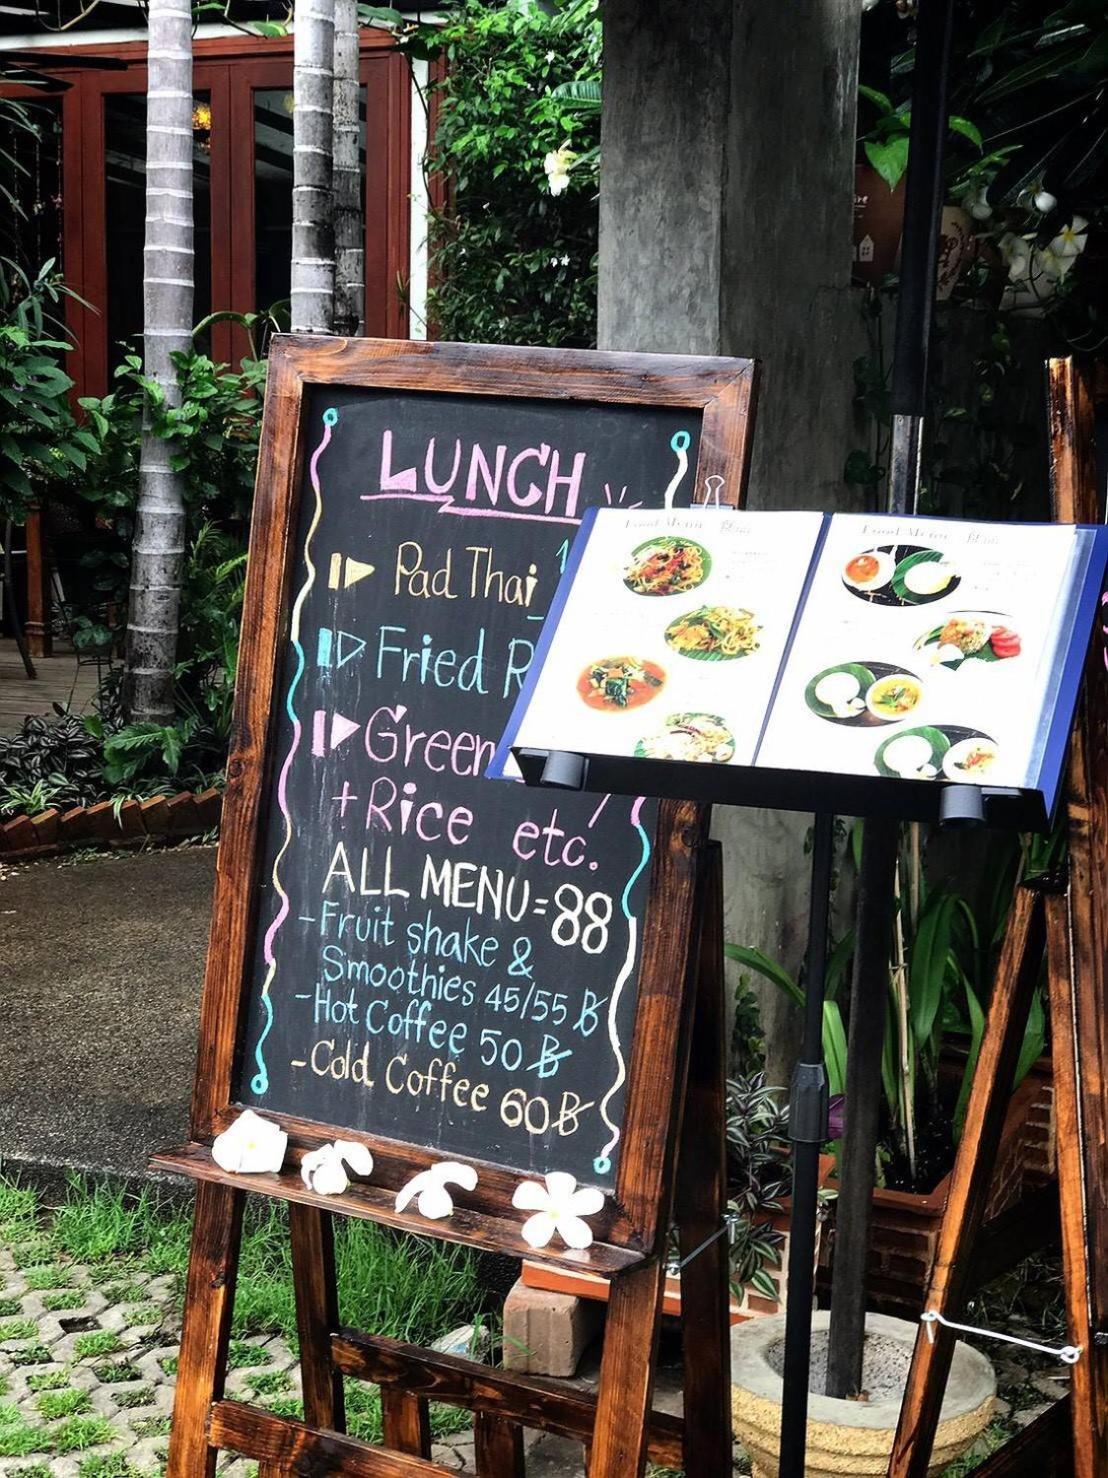 LUNCH
Pad Thai
Fried
Green
+Rice etc.
ALL MENU=88
-Fruit shake &
Smoothies 45/55 ฿
-Hot Coffee 50 ฿
-Cold Coffee 60 ฿
Food Menu
Food Menu